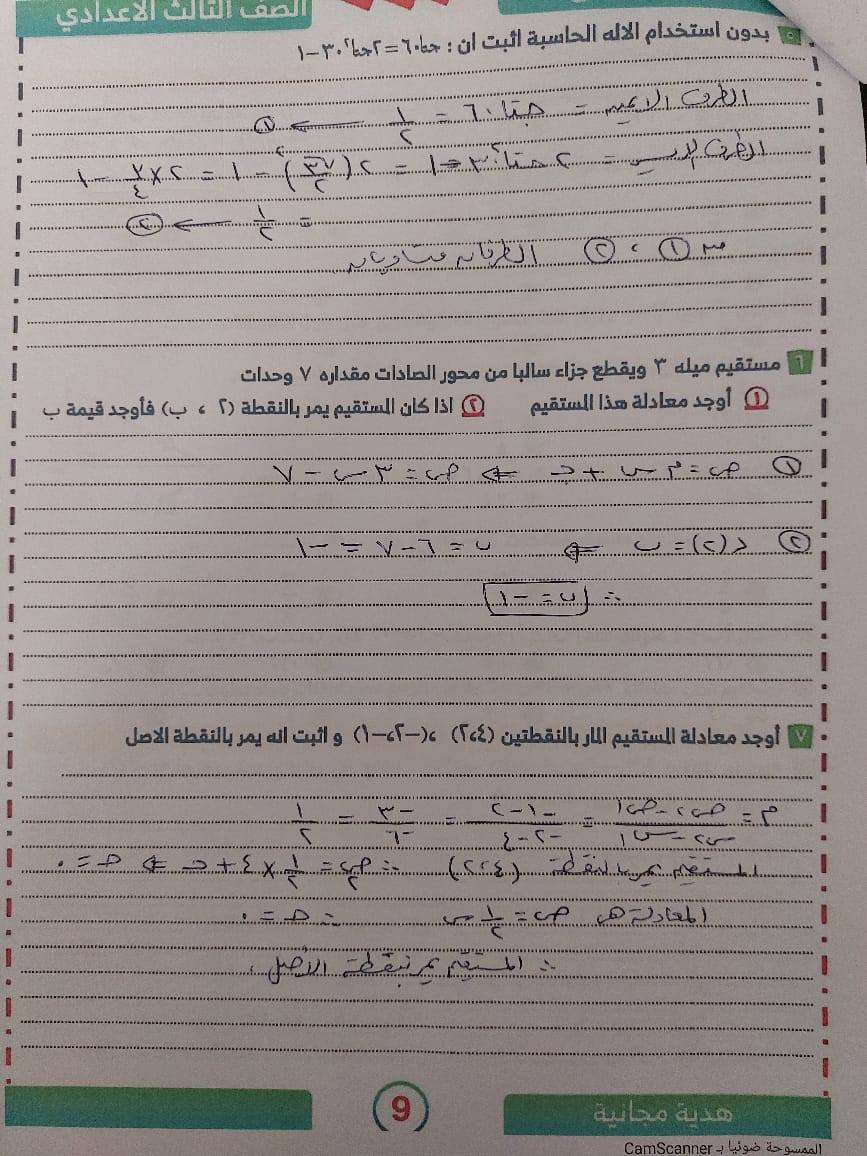 الصف الثالث الاعدادي
٥ بدون استخدام الاله الحاسبة اثبت ان : جتا٦٠ = ٢جتا²٣٠ – ١
الطرف الايمن = جتا٦٠ = ١/٢ ← ①
الطرف الايسر = ٢ جتا²٣٠ – ١ = ٢(√٣/٢)² – ١ = ٢×٣/٤ – ١
= ١/٢ ← ②
من ① ، ② الطرفان متساويان
٦ مستقيم ميله ٣ ويقطع جزاء سالبا من محور الصادات مقداره ٧ وحدات
١ أوجد معادلة هذا المستقيم ٢ اذا كان المستقيم يمر بالنقطة (٢ ، ب) فأوجد قيمة ب
① ص = م س + جـ ⇐ ص = ٣س – ٧
② د(٢) = ب ⇐ ب = ٦ – ٧ = –١
∴ ب = –١
٧ أوجد معادلة المستقيم المار بالنقطتين (٢،٤) ،(–٢،–١) و اثبت انه يمر بالنقطة الاصل
م = ص٢ – ص١ / س٢ – س١ = –١–٢ / –٢–٤ = –٣/–٦ = ١/٢
المستقيم يمر بالنقطة (٢،٤) ∴ ٢ = ١/٢ × ٤ + جـ ⇐ جـ = ٠
المعادلة هى ص = ١/٢ س ∵ جـ = ٠
∴ المستقيم يمر بنقطة الأصل
9
هدية مجانية
الممسوحة ضوئيا بـ CamScanner